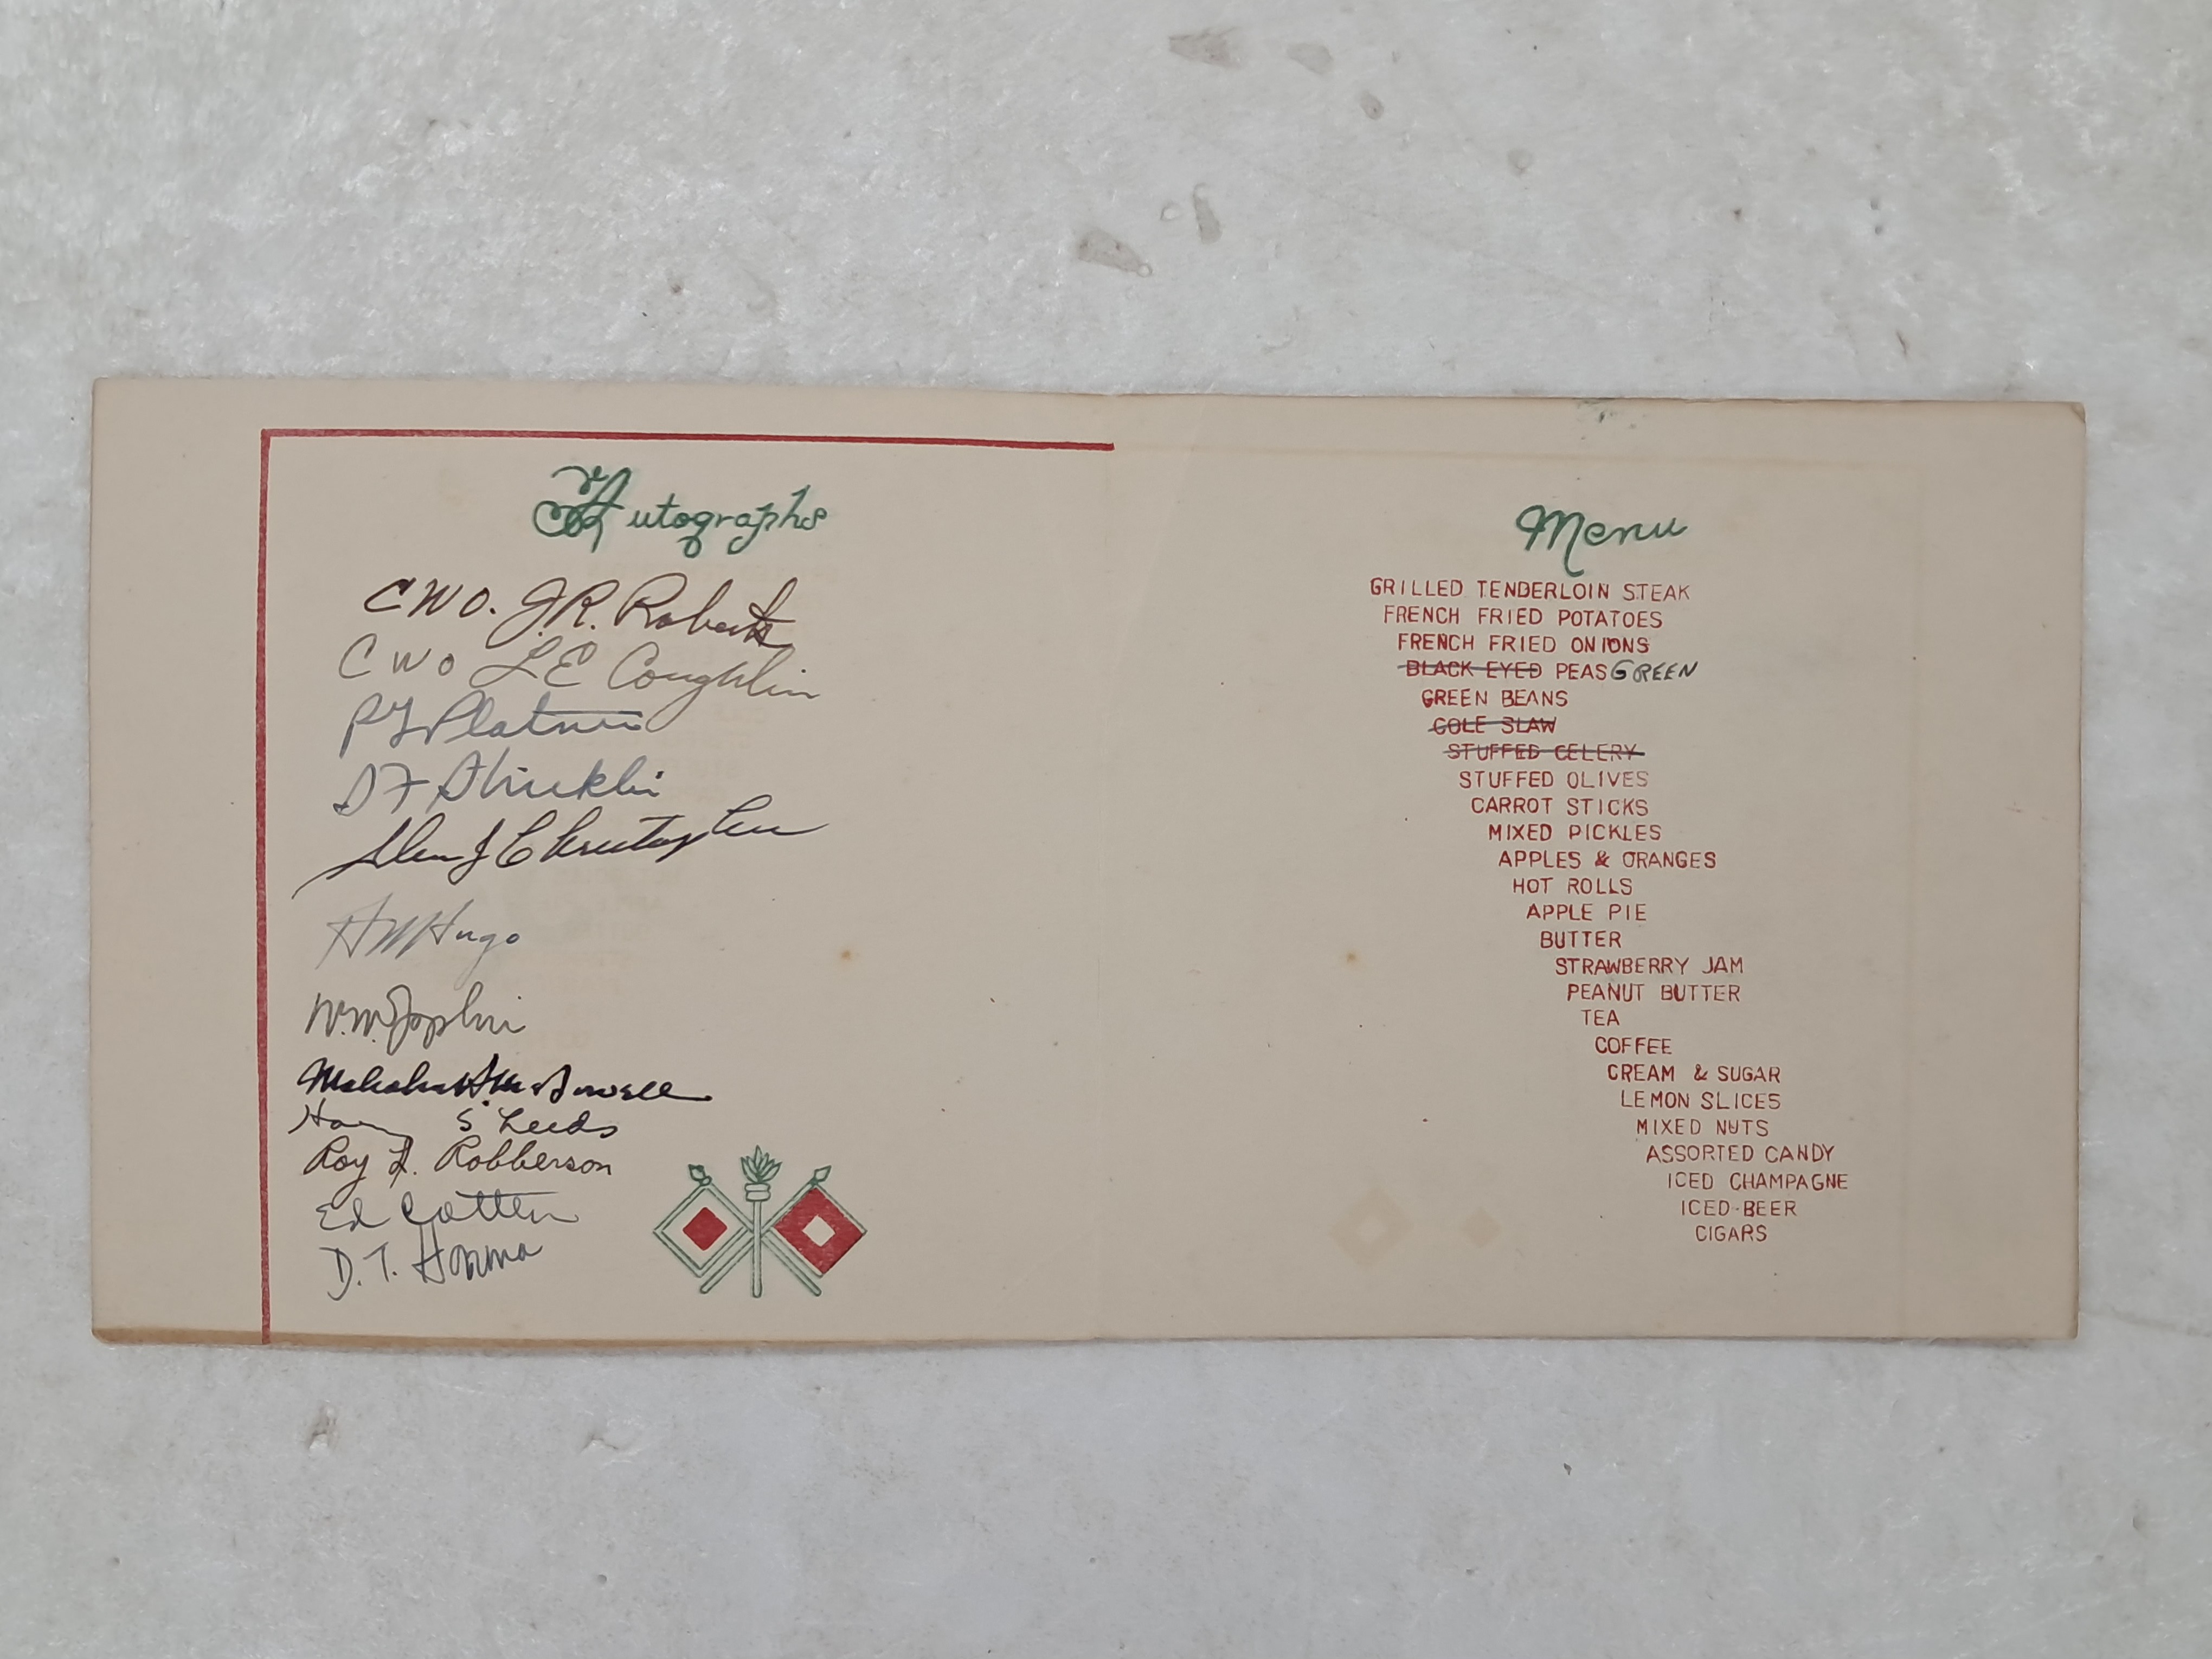 Autographs
CWO. J.R. Roberts
CWO LE Coughlin
D F Stricklin
J Christopher
H M Hugo
W.W. Joplin
S Leeds
Roy L. Robberson
Ed Cotten
D. T. Honma
Menu
GRILLED TENDERLOIN STEAK
FRENCH FRIED POTATOES
FRENCH FRIED ONIONS
BLACK EYED PEAS GREEN
GREEN BEANS
COLE SLAW
STUFFED CELERY
STUFFED OLIVES
CARROT STICKS
MIXED PICKLES
APPLES & ORANGES
HOT ROLLS
APPLE PIE
BUTTER
STRAWBERRY JAM
PEANUT BUTTER
TEA
COFFEE
CREAM & SUGAR
LEMON SLICES
MIXED NUTS
ASSORTED CANDY
ICED CHAMPAGNE
ICED BEER
CIGARS